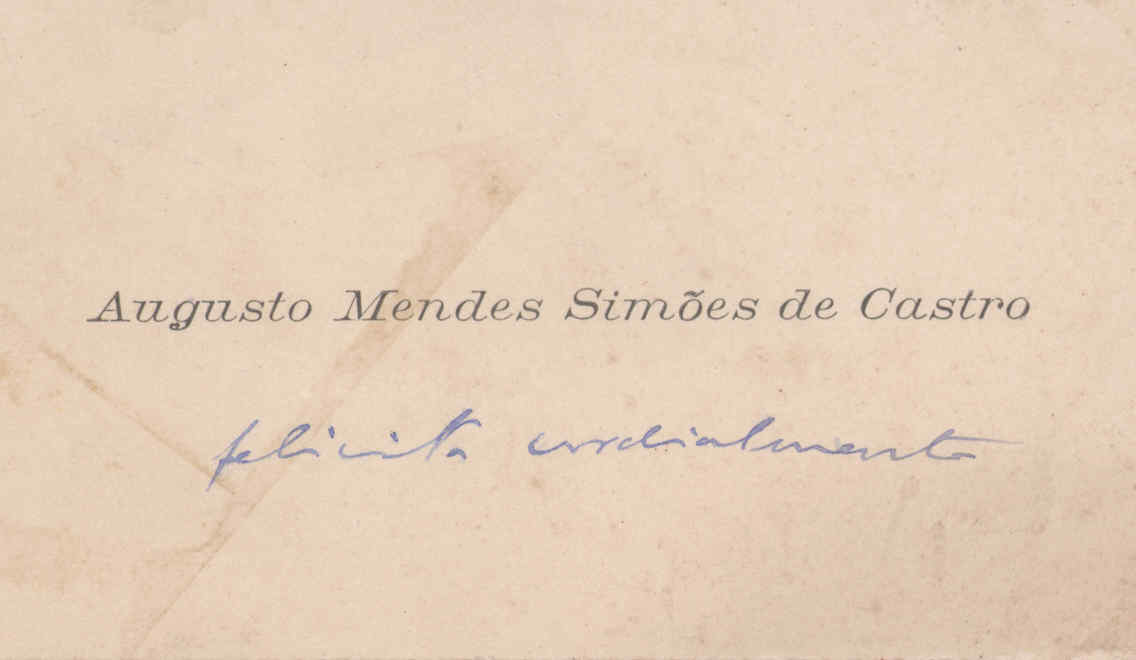 Augusto Mendes Simões de Castro
felicita cordialmente